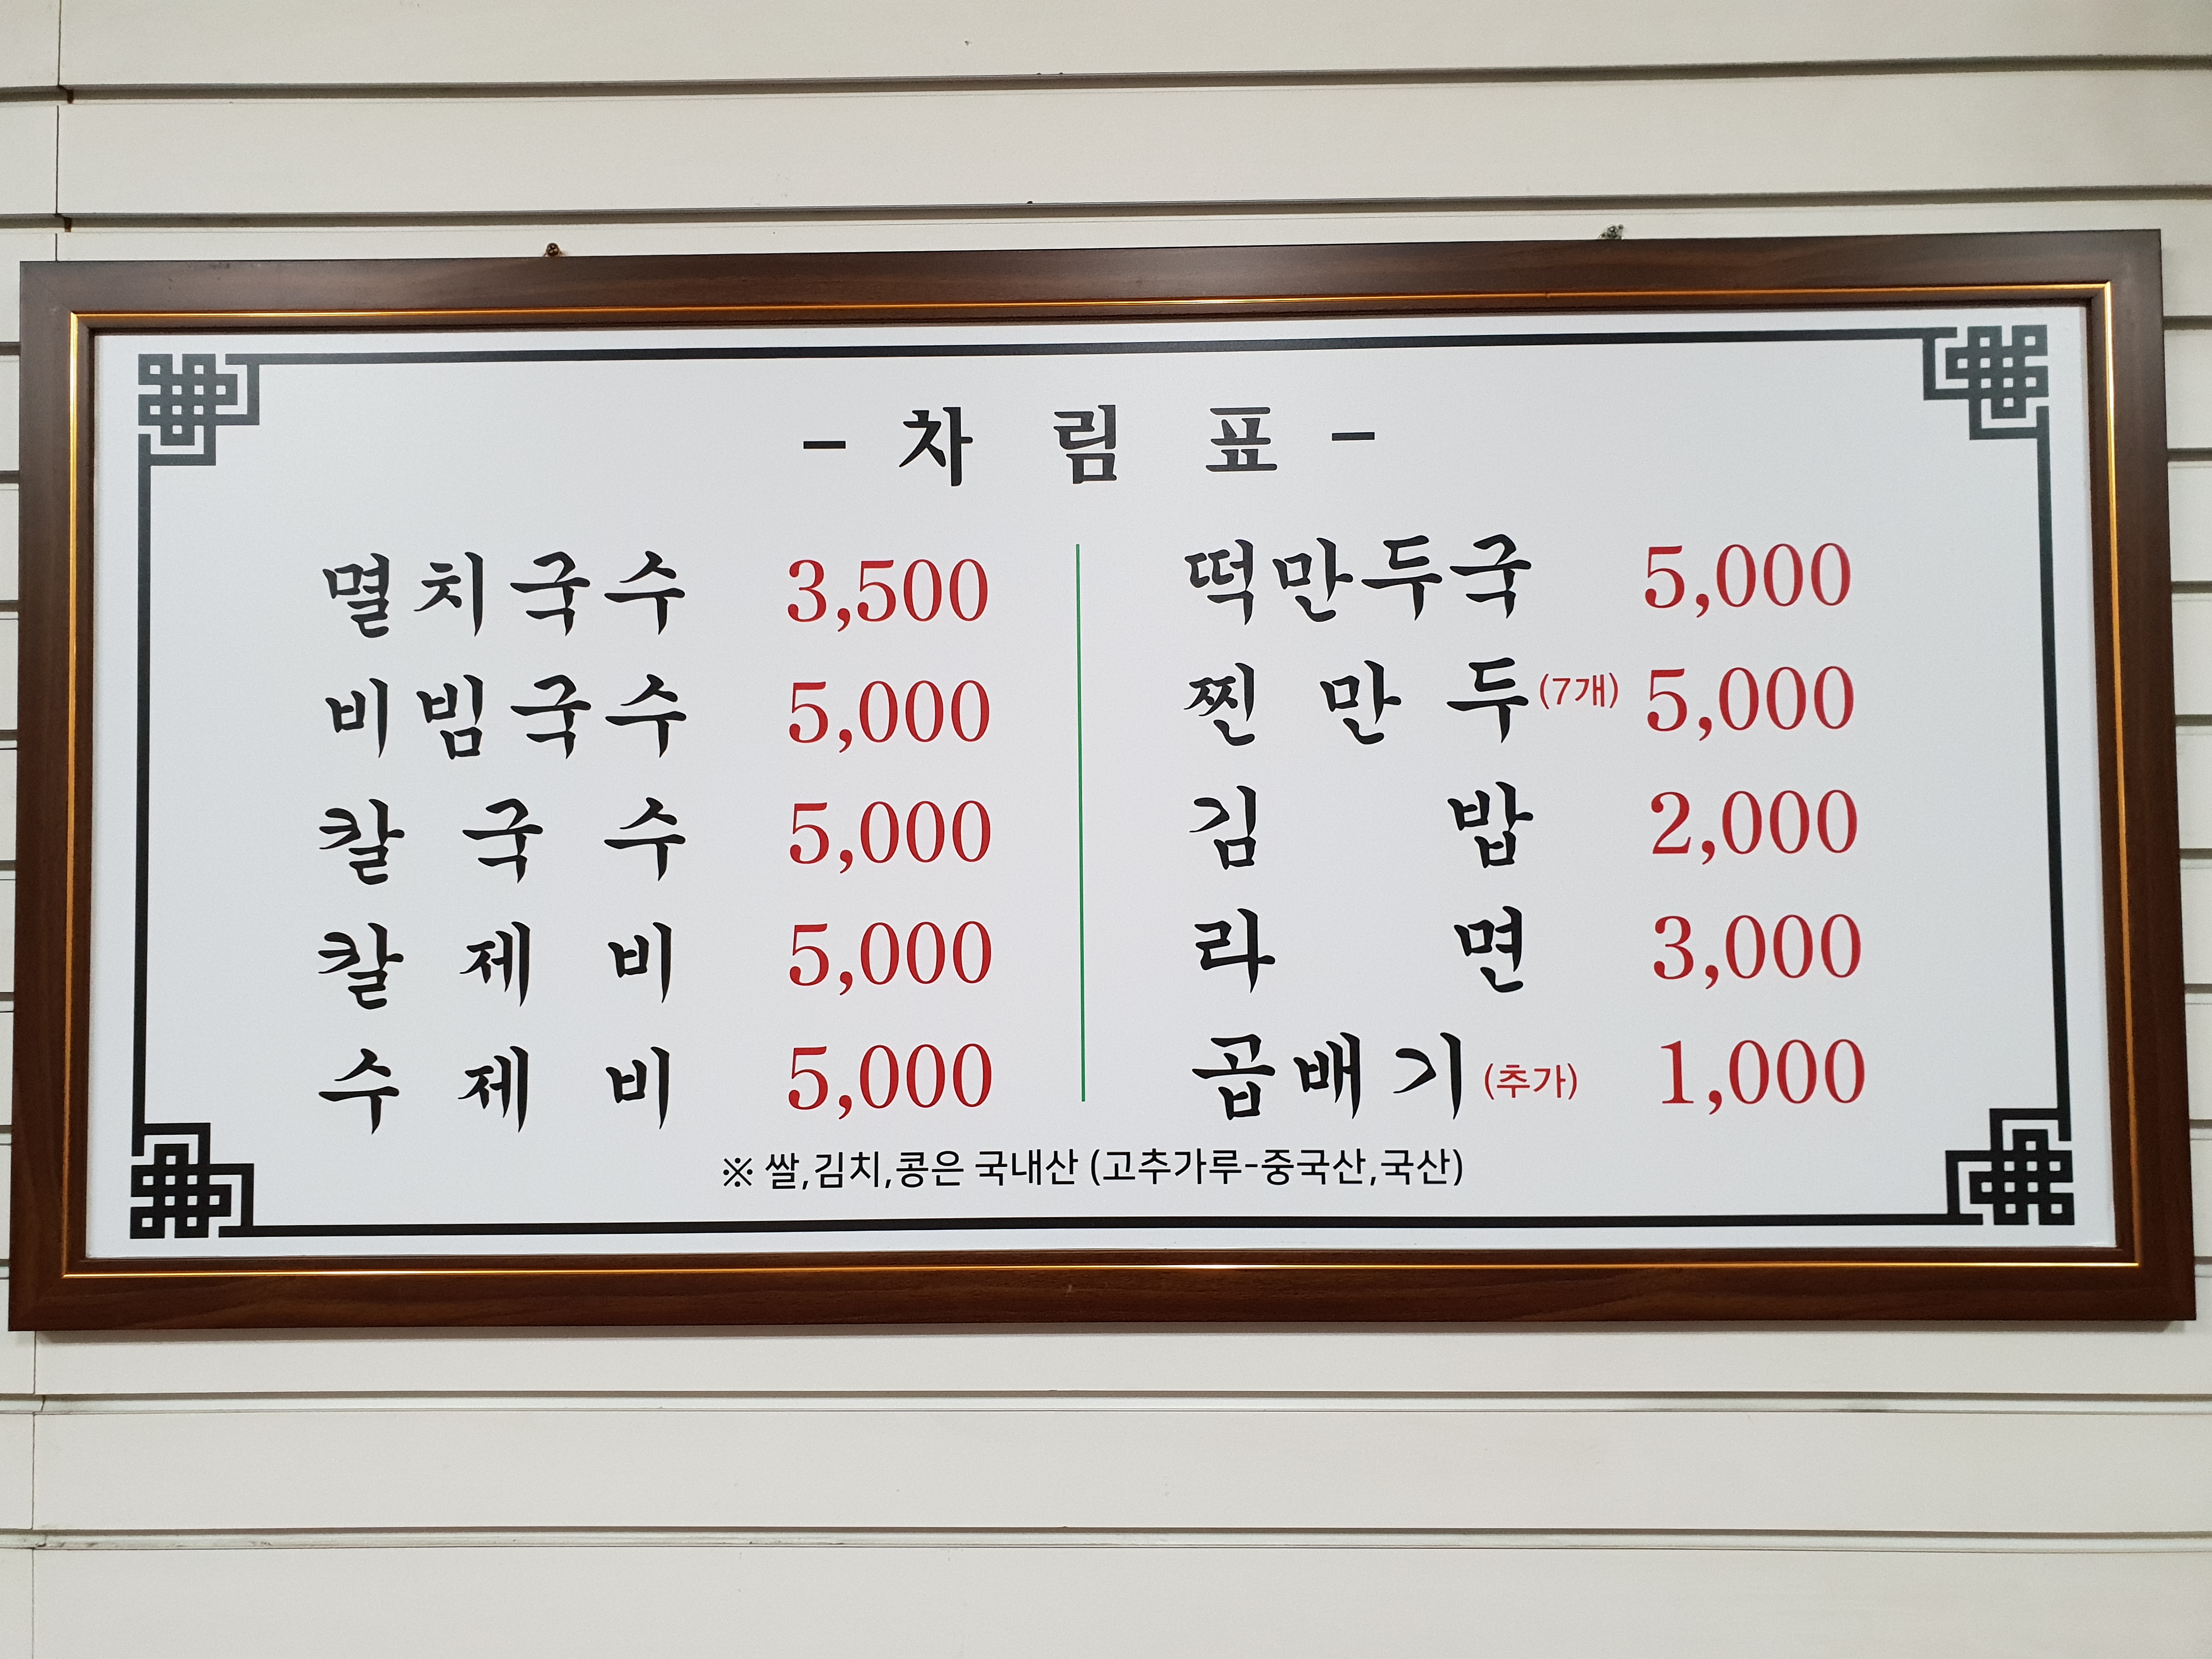 - 차 림 표 -
멸치국수 3,500
비빔국수 5,000
칼국수 5,000
칼제비 5,000
수제비 5,000
떡만두국 5,000
찐만두(7개) 5,000
김밥 2,000
라면 3,000
곱배기(추가) 1,000
※ 쌀,김치,콩은 국내산 (고추가루-중국산,국산)